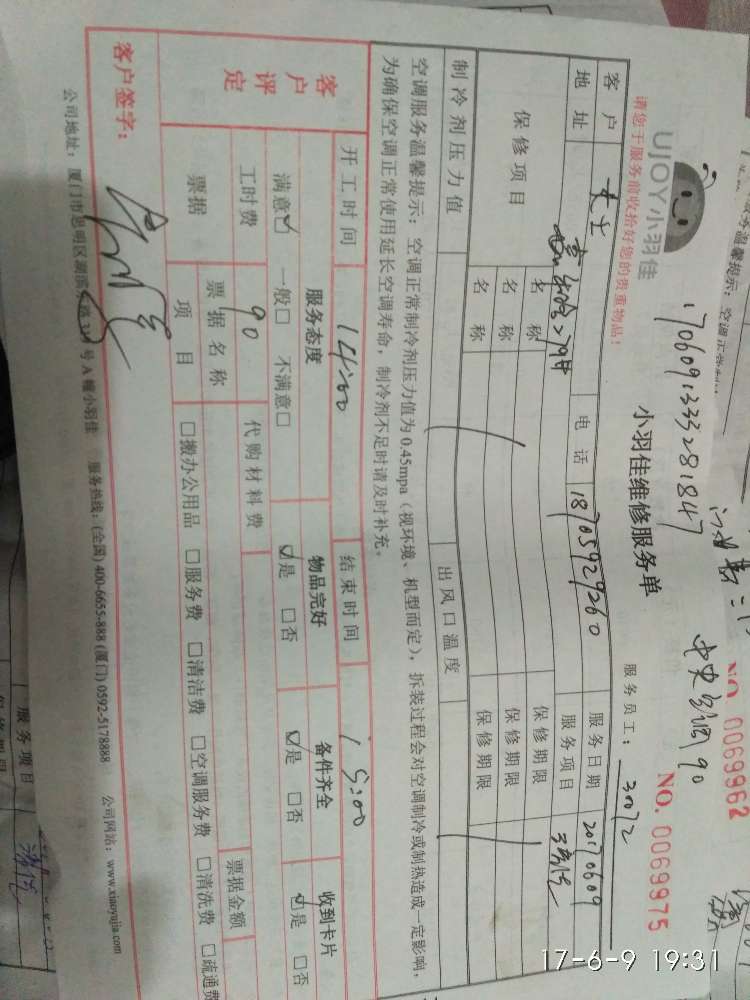 UJOY小羽佳
请您于服务前收拾好您的贵重物品！
1706091333281847
小羽佳维修服务单
NO. 0069975
服务员工：
客户
电话
18705929260
服务日期
20170609
地址
服务项目
保修项目
名称
保修期限
名称
保修期限
名称
保修期限
制冷剂压力值
出风口温度
空调服务温馨提示：空调正常制冷剂压力值为0.45mpa（视环境、机型而定），拆装过程会对空调制冷或制热造成一定影响，
为确保空调正常使用延长空调寿命，制冷剂不足时请及时补充。
客户评定
开工时间
14:00
结束时间
15:00
服务态度
物品完好
备件齐全
收到卡片
满意☑ 一般□ 不满意□
☑是 □否
☑是 □否
☑是 □否
工时费
90
代购材料费
票据
票据名称
票据金额
项目
□搬办公用品 □服务费 □清洁费 □空调服务费 □清洗费 □疏通费
客户签字：
公司地址：厦门市思明区
号A幢小羽佳
服务热线：(全国) 400-6655-888 (厦门) 0592-5178888
公司网站：www.xiaoyujia.com
NO. 0069962
90
服务项目
保修期限
17-6-9 19:31